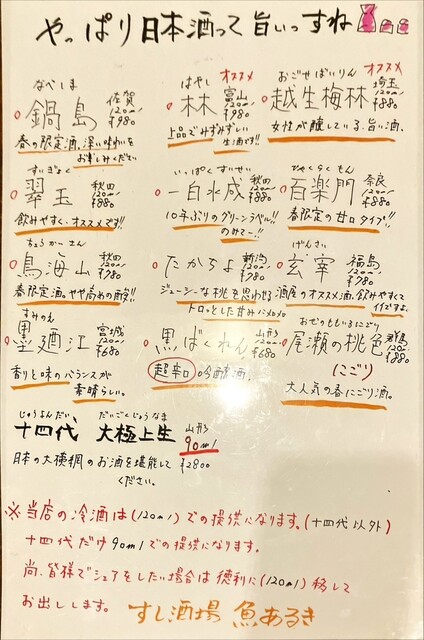 やっぱり日本酒って旨いっすね
なべしま
鍋島 佐賀 120ml ¥980
春の限定酒、深い味わいを
お楽しみください
はやし オススメ
林 富山 120ml ¥980
上品でみずみずしい
生酒です!!
おごせばいりん オススメ
越生梅林 埼玉 120ml ¥880
女性が醸している、旨い酒。
すいぎょく
翠玉 秋田 120ml ¥880
飲みやすく、オススメです!!
いっぱくすいせい
一白水成 秋田 120ml ¥880
10年ぶりのグリーンラベル!!
のみてー!!
ひゃくらくもん
百楽門 奈良 120ml ¥880
春限定の甘口タイプ!!
ちょうかいさん
鳥海山 秋田 120ml ¥780
春限定酒。やや高めの酸!!
たかちよ 新潟 120ml ¥780
ジューシーな桃を思わせる
トロッとした甘みにメロメロ
げんさい
玄宰 福島 120ml ¥780
酒屋のオススメ酒、飲みやすくて
イイですよ。
すみのえ
墨廼江 宮城 120ml ¥680
香りと味のバランスが
素晴らしい。
黒ばくれん 山形 120ml ¥680
超辛口の冷酸酒。
おぜのももいろにごり
尾瀬の桃色 群馬 120ml ¥880
(にごり)
大人気の春にごり酒。
じゅうよんだい だいごくじょうなま
十四代 大極上生 山形 90ml ¥2800
日本の大横綱のお酒を堪能して
ください。
※当店の冷酒は(120ml)での提供になります。(十四代以外)
十四代だけ90mlでの提供になります。
尚、皆様でシェアをしたい場合は徳利に(120ml)移して
お出しします。 すし酒場 魚あるき